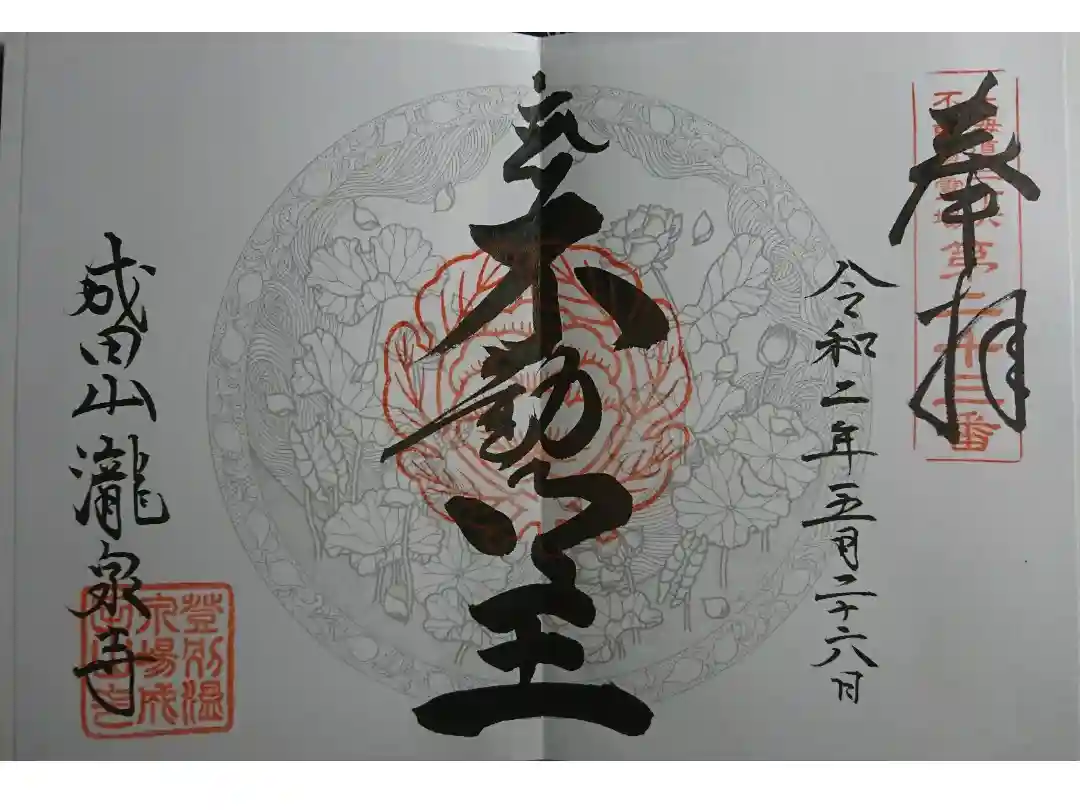 奉拝
第二十三番
令和二年五月二十六日
不動明王
成田山瀧泉寺
登別温
泉場成